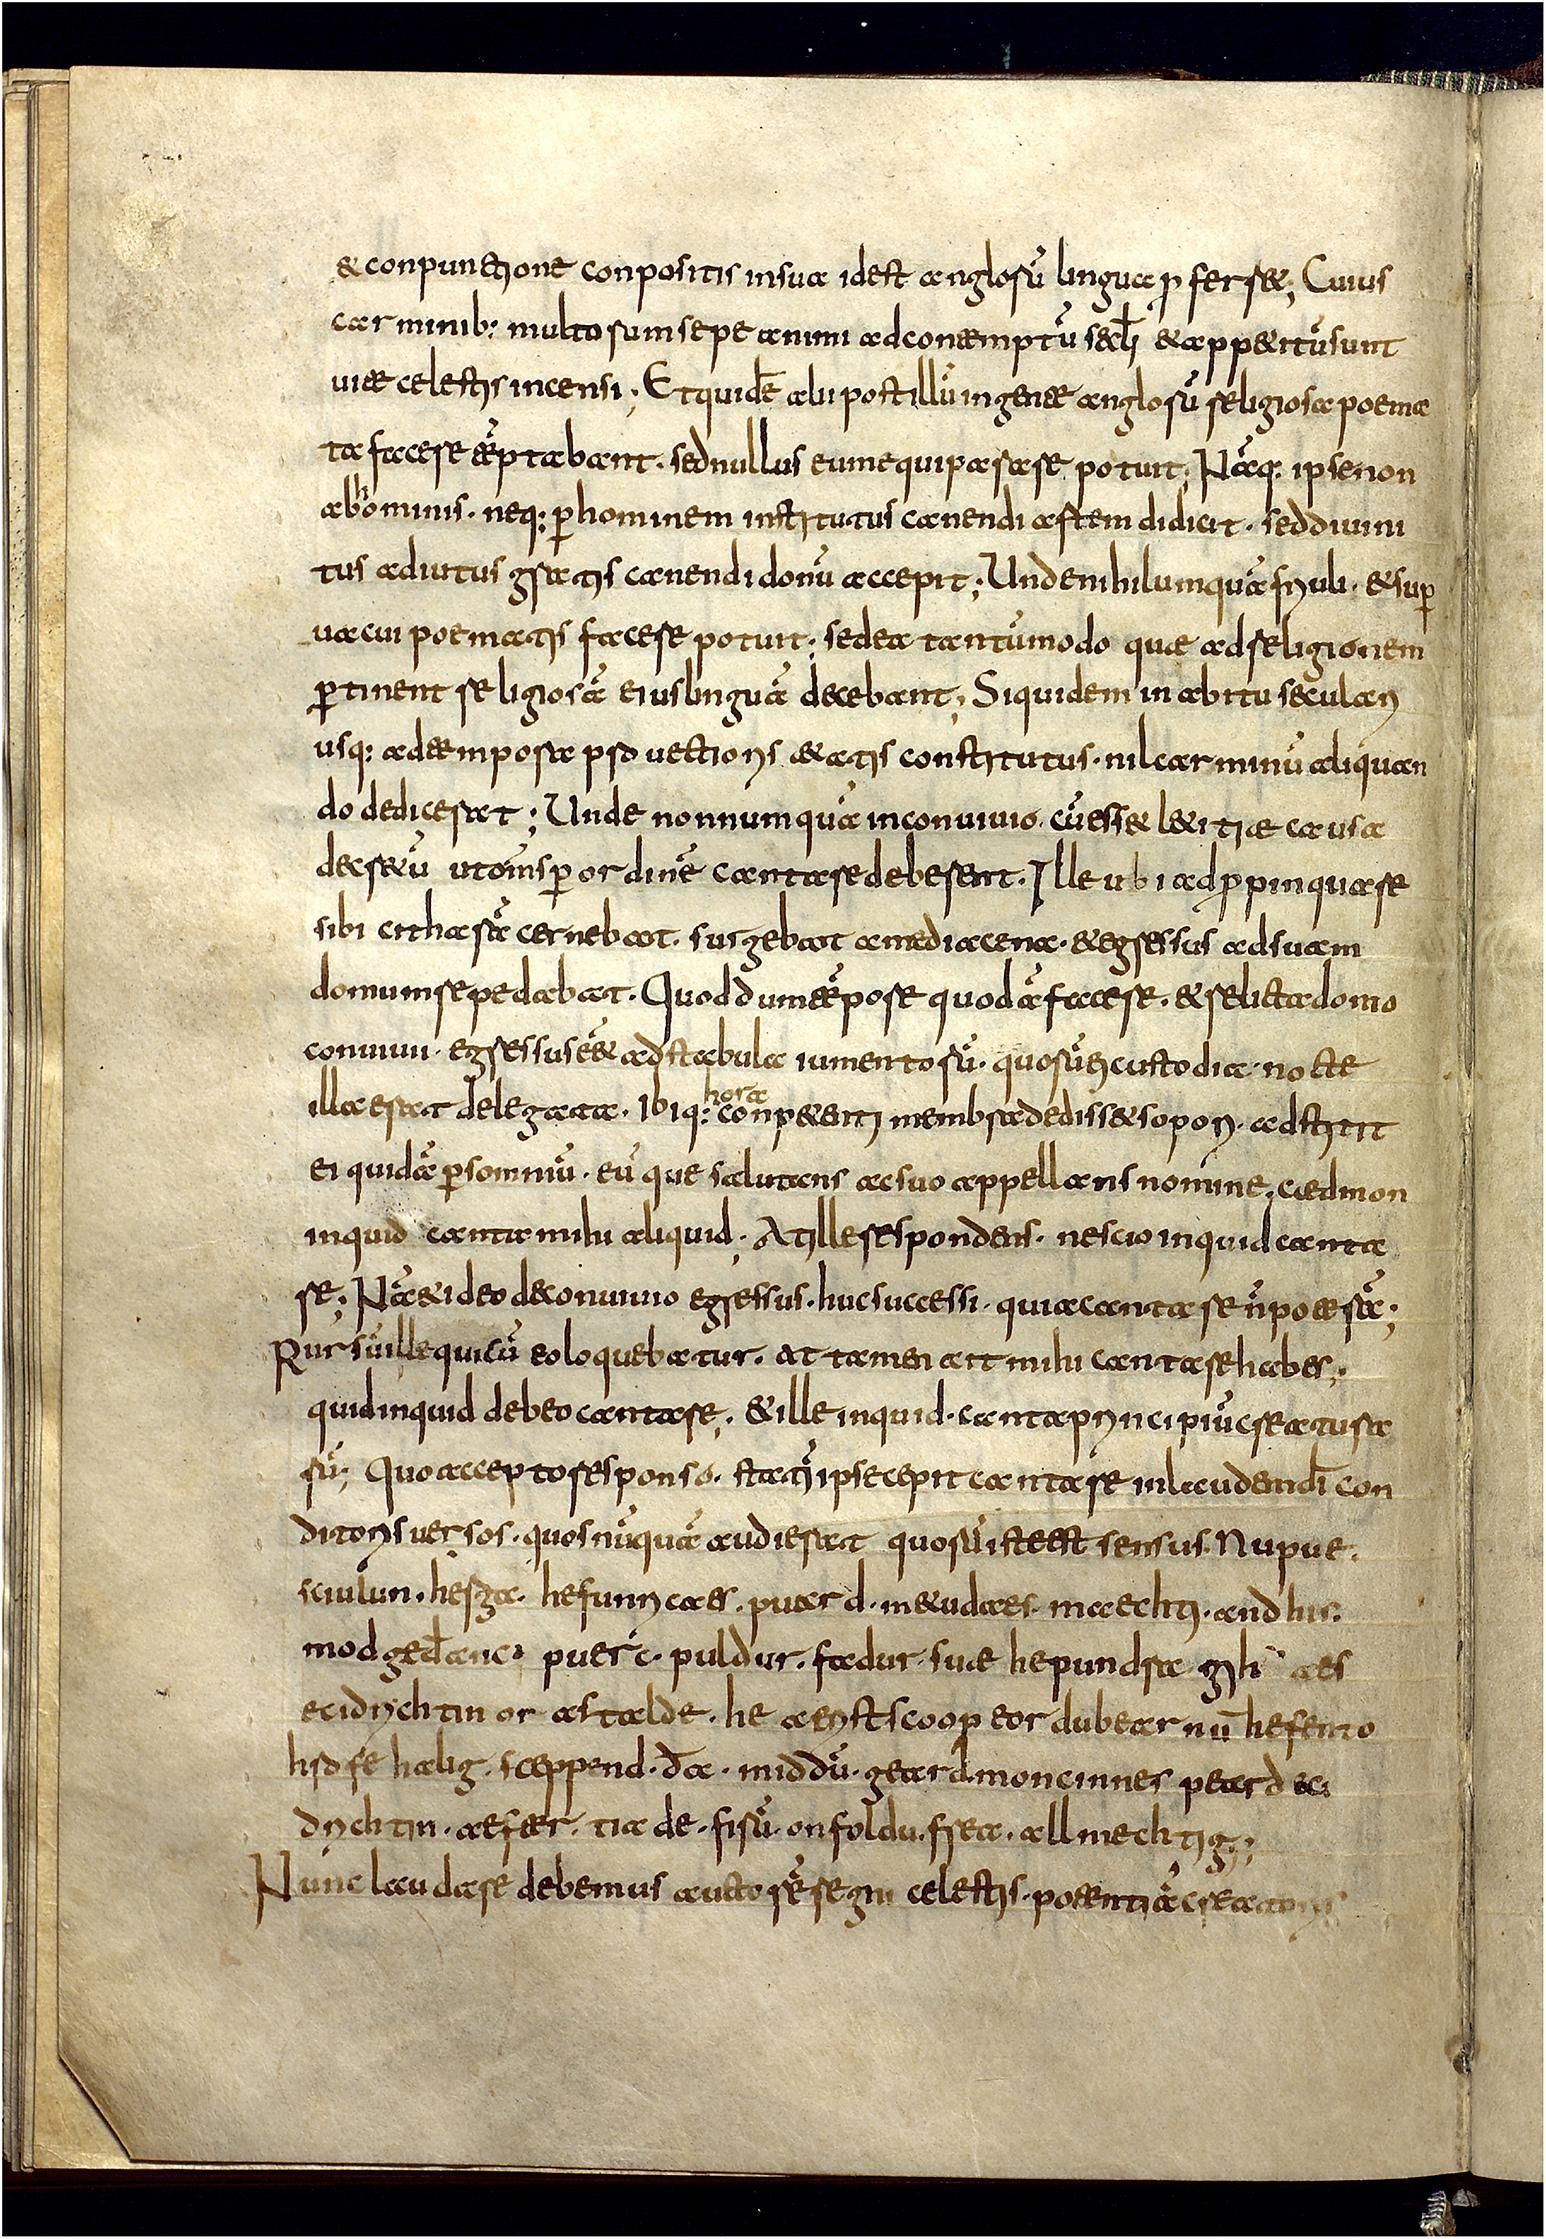 & conpunctione conpositis in sua id est anglorū lingua ꝓferr&; Cuius
carminib: multorum sepe animi ad contemptū sęcłi & app&itū sunt
uitae celestis incensi; Et quidē alii post illū in gente anglorū religiosa poema
ta facere tēptabant. sed nullus eum equiparare potuit; Nāq: ipse non
ab hominis. neq: ꝑ hominem institutus canendi artem didicit. sed diuini
tus adiutus gratis canendi donū accepit; Unde nihil umquā friuli. & suꝑ
uacui poematis facere potuit; sed ea tantūmodo quae ad religionem
ꝑtinent religiosā eius linguā decebant; Siquidem in abitu seculari
usq: ad tempora prouectioris &atis constitutus. nil carminū aliquan
do dedicerat; Unde nonnumquā in conuiuio. cū ess& l&itiae causa
decr&ū ut om̄s ꝑ ordinē cantare deberent. Ille ubi adꝓpinquare
sibi citharā cernebat. surgebat a media cena. & egressus ad suam
domum sepedabat. Quod dum tēpore quodā facere. & relicta domo
conuiuii. egressus ēē& ad stabula iumentorū. quorū ei custodia nocte
illa erat delegata. ibiq: hora conp&enti membra dediss& sopori. adstitit
ei quidā ꝑ somniū. eūque salutans ac suo appellans nomine. caedmon
inquid canta mihi aliquid; At ille respondens. nescio inquid canta
re; Nā & ideo de conuiuio egressus. huc successi. quia cantare n̄ poterā;
Rursū ille qui cū eo loquebatur. at tamen ait mihi cantare habes;
quid inquid debeo cantare; & ille inquid. canta principiū creatura
rū; Quo accepto responso. statī ipse cepit cantare in laudem dī con
ditoris uersos. quos nūquā audierat quorū iste est sensus. Nu ƿue.
sciulun. herga. hefunricaes. ƿuard. metudaes. maechti. and his.
modgedanc. ƿuerc. ƿuldur. fadur. suae he ƿundra gihuaes
eci drichtin or astalde. he aerist scoop eordu bearnū hefento
hrofe halig. sceppend. ða. middū. geard. moncinnes ƿeard eci
drichtin. aefter. tiade. firū. on foldu. frea. allmechtig;
Nunc laudare debemus auctorē regni celestis. potentiā creatoris